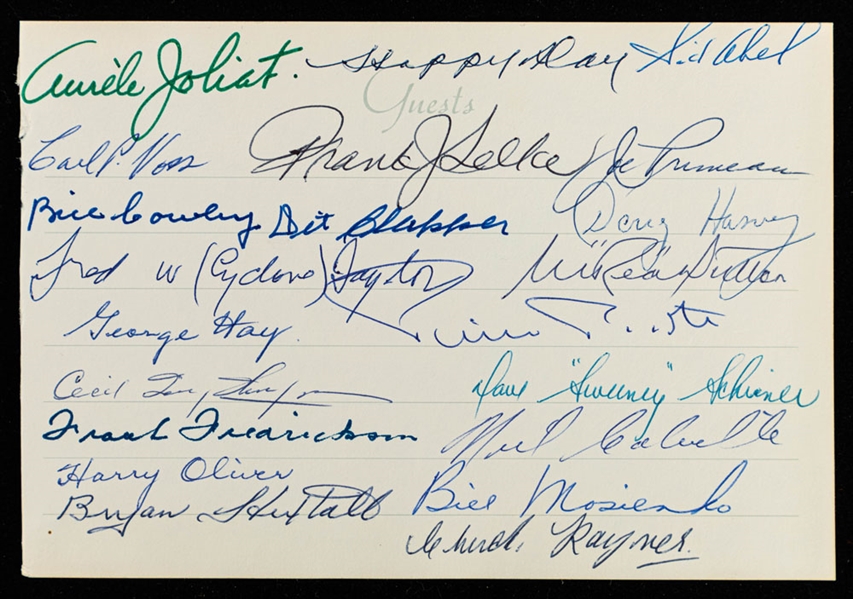 Aurèle Joliat. Happy Day Sid Abel
Guests
Carl P. Voss Frank J Selke Joe Primeau
Bill Cowley Dit Clapper Doug Harvey
Fred W (Cyclone) Taylor M "Red" Dutton
George Hay
Cecil Tiny Thompson Dave "Sweeney" Schriner
Frank Fredrickson Neil Colville
Harry Oliver
Bryan Hextall Bill Mosienko
Chuck Rayner.